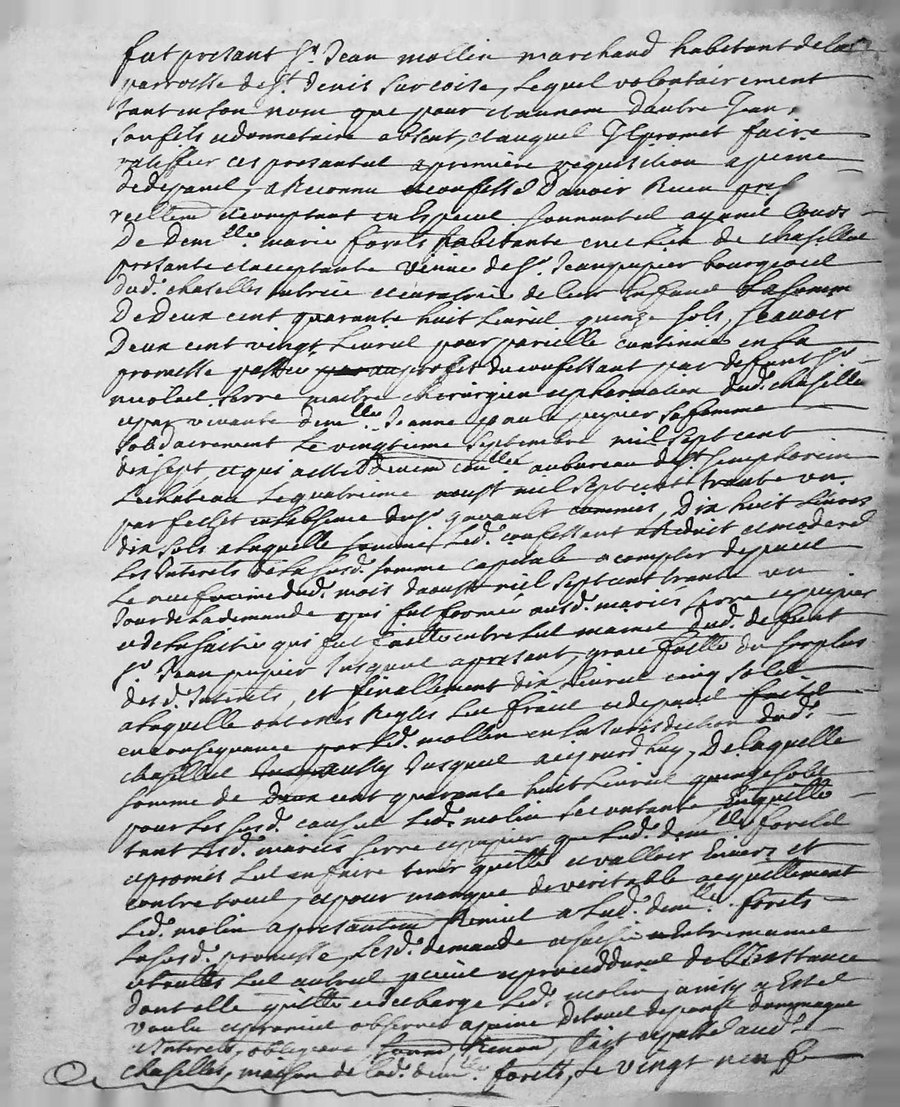 fut presant Sr. Jean mollin marchand habitant de la
parroisse de St. denis sur coise, lequel volontairement
tant en son nom que pour et au nom dautre Jean
son fils et donnetaire absent, et auquel Il promet faire
ratiffier ces presantes a première requisition a peine
de depans, a Reconnu et confessé D'avoir Receu
reellemt. et comptant en Espece sonnantes ayant Cours
De Demlle. marie forets habitante en cette de chaselles
presante et acceptante veuve de Sr. Jean pupier bourgeois
dud. chaselles tutrice et curatrice de leur Enfans La somme
De Deux cent quarante huit Livres quinze sols, scavoir
Deux cent vingt Livres pour pareille contenue en la
promesse passée au profit du confessant par deffunt Sr.
nicolas serre maitre chirurgien apotiquaire dud. chaselle
et par vivante demlle. Jeanne paule pupier sa femme
solidairement Le vingtieme septembre mil sept cent
dix sept, et qui a esté au bureau de St simphorien
Le chateau Le quatrieme aoust mil sept cent trante un
par fechet en labsence du Sr. gavault commis, Dix huit Livres
dix sols a laquelle somme Led. confessant a Reduit et moderé
Les Interets de la susd. somme capitale a compter depuis
Le neufvieme dud. mois daoust mil sept cent trante un
Jour de la demande qui fut formée ausd. mariés serre et pupier
et de la saisie qui fut faitte entre les mains dud. deffunt
Sr. Jean pupier Jusques apresant, grace faitte du surplus
desd. Interets, et finallement dix Livres cinq soles
a laquelle ont estés Reglés Les fraix et depans faits
en consequance par Led. mollin en la Jurisdiction dud.
chaselles Jusques aujourd'huy, De laquelle
somme de Deux cent quarante huit Livres quinze sols
pour Les susd. causes Led. molin se contante En quitte
tant Lesd. mariés serre et pupier que Lad. demlle. forets
et promet Les en faire tenir quitte et valloir Envers et
contre tous, et pour marque de veritable acquittement
Led. molin a presantemt. Remis a Lad. demlle. forets
La susd. promesse, Lesd. demande et saisie
et touttes Les autres pieces et proceddures de L'Instance
dont elle quitte et decharge Led. molin, ainsy a Esté
voulu et promis observer a peine de tous depans dommages
Interets, obligeans, Fait et passé aud.
chaselles, maison de lad. demlle. forets, Le vingt neuf